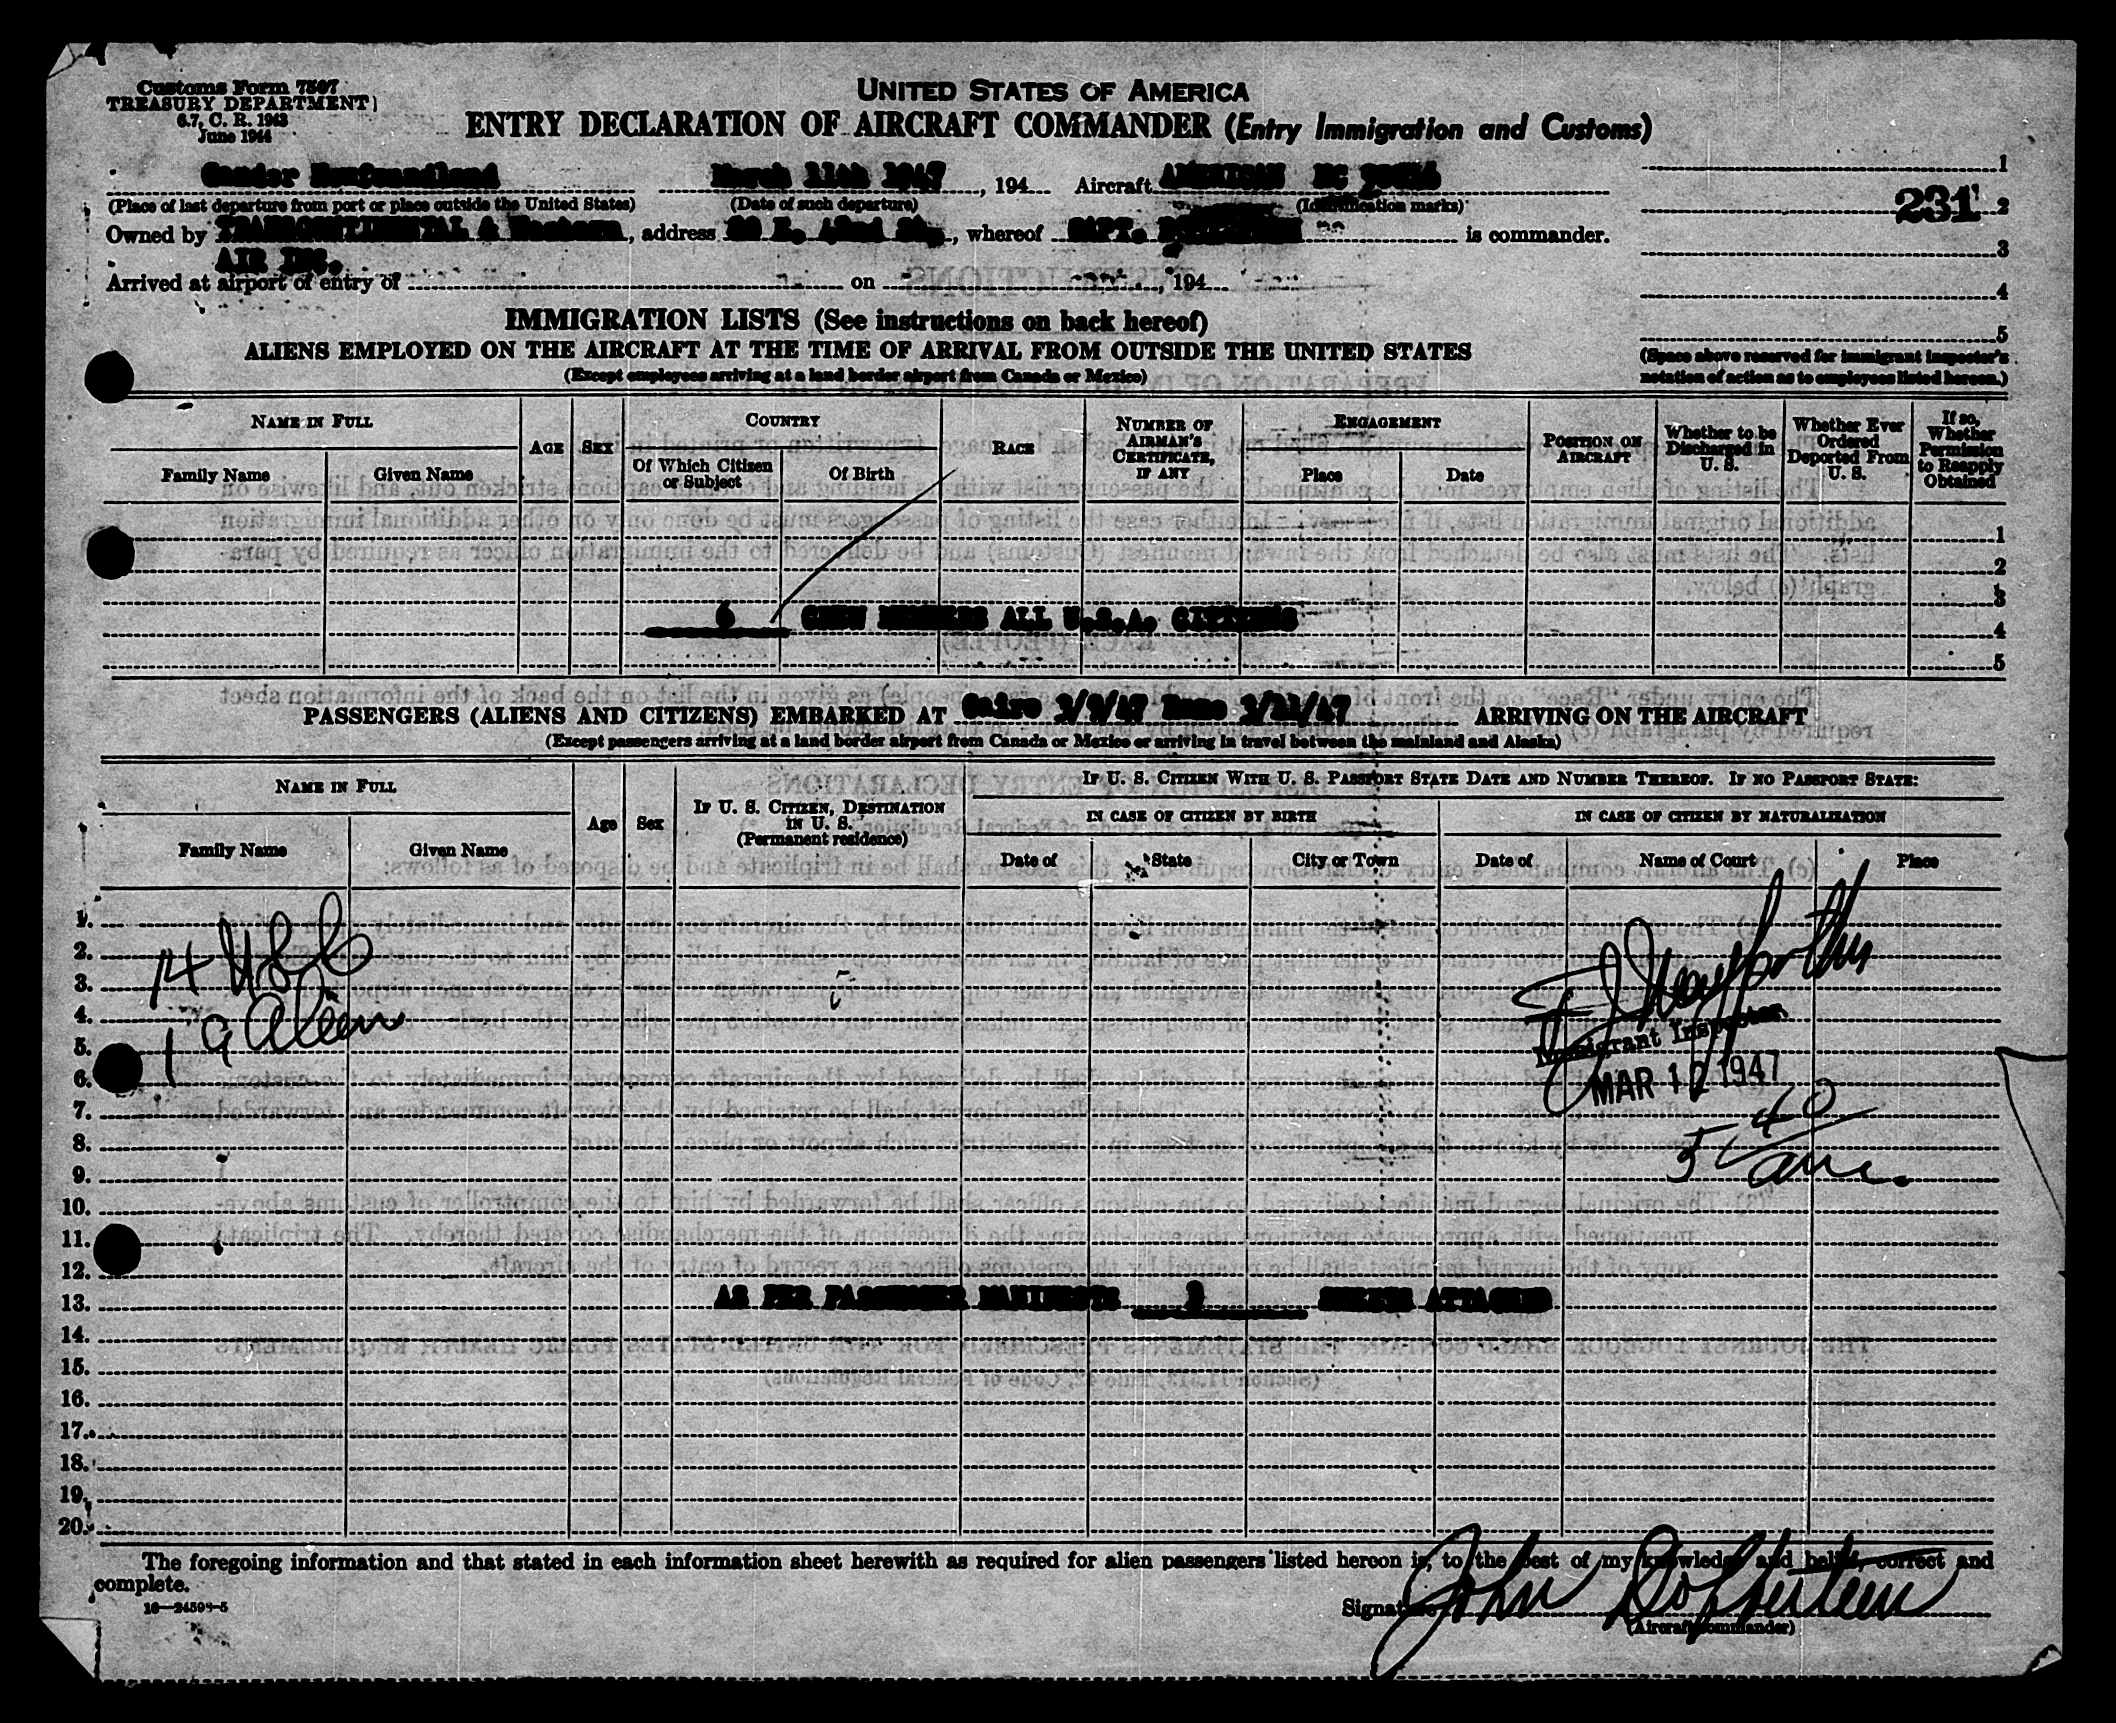 Customs Form 7507
TREASURY DEPARTMENT
6.7, C. R. 1943
June 1944
UNITED STATES OF AMERICA
ENTRY DECLARATION OF AIRCRAFT COMMANDER (Entry Immigration and Customs)
Gander Newfoundland March 11th 1947, 194 Aircraft AMERICAN NC
(Place of last departure from port or place outside the United States) (Date of such departure) (Identification marks)
Owned by TRANSCONTINENTAL & Western, address 42nd St., whereof CAPT. is commander.
AIR INC.
Arrived at airport of entry of on , 194
1
231 2
3
4
5
(Space above reserved for immigrant inspector's
notation of action as to employees listed hereon.)
IMMIGRATION LISTS (See instructions on back hereof)
ALIENS EMPLOYED ON THE AIRCRAFT AT THE TIME OF ARRIVAL FROM OUTSIDE THE UNITED STATES
(Except employees arriving at a land border airport from Canada or Mexico)
NAME IN FULL
Family Name
Given Name
AGE
SEX
COUNTRY
Of Which Citizen
or Subject
Of Birth
RACE
NUMBER OF
AIRMAN'S
CERTIFICATE,
IF ANY
ENGAGEMENT
Place
Date
POSITION ON
AIRCRAFT
Whether to be
Discharged in
U. S.
Whether Ever
Ordered
Deported From
U. S.
If so,
Whether
Permission
to Reapply
Obtained
1
2
3
6 CREW MEMBERS ALL U.S.A. CITIZENS
4
5
PASSENGERS (ALIENS AND CITIZENS) EMBARKED AT Cairo 3/9/47 Rome 3/11/47 ARRIVING ON THE AIRCRAFT
(Except passengers arriving at a land border airport from Canada or Mexico or arriving in travel between the mainland and Alaska)
NAME IN FULL
Family Name
Given Name
Age
Sex
IF U. S. CITIZEN, DESTINATION
IN U. S.
(Permanent residence)
IF U. S. CITIZEN WITH U. S. PASSPORT STATE DATE AND NUMBER THEREOF. IF NO PASSPORT STATE:
IN CASE OF CITIZEN BY BIRTH
IN CASE OF CITIZEN BY NATURALIZATION
Date of
State
City or Town
Date of
Name of Court
Place
1.
2.
14
3.
4.
1 Alien
5.
Immigrant Inspector
6.
MAR 12 1947
7.
5 40
8.
9.
10.
11.
12.
13. AS PER PASSENGER MANIFESTS SHEETS ATTACHED
14.
15.
16.
17.
18.
19.
20.
The foregoing information and that stated in each information sheet herewith as required for alien passengers listed hereon is, to the best of my knowledge and belief, correct and
complete.
16—24598-5
Signature John
(Aircraft commander)